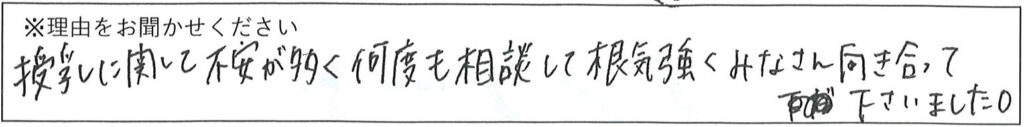 ※理由をお聞かせください
授乳に関して不安が多く何度も相談して根気強くみなさん向き合って
下さいました。